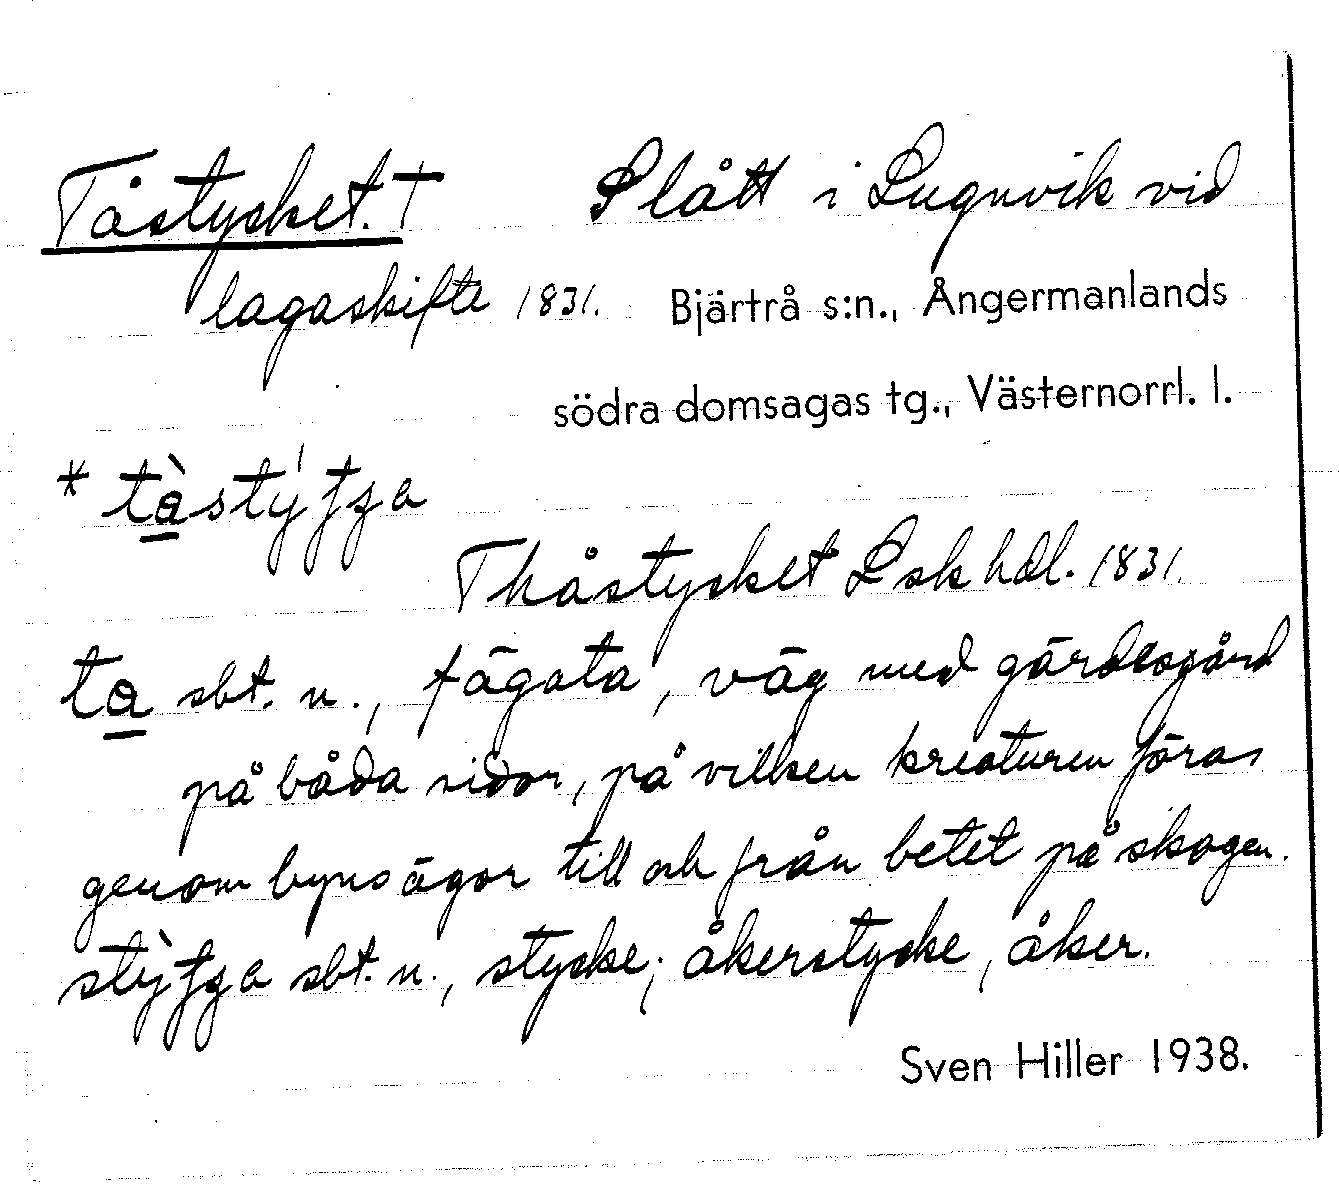 Tåstycket. † Slått i Lugnvik vid
lagaskifte 1831. Bjärtrå s:n., Ångermanlands
södra domsagas tg., Västernorrl. l.
* tàstýʃʒa
Thåstycket Lskhdl. 1831.
ta sbt. n., fägata, väg med gärdesgård
på båda sidor, på vilken kreaturen föras
genom byns ägor till och från betet på skogen.
stỳʃʒa sbt. n., stycke; åkerstycke, åker.
Sven Hiller 1938.